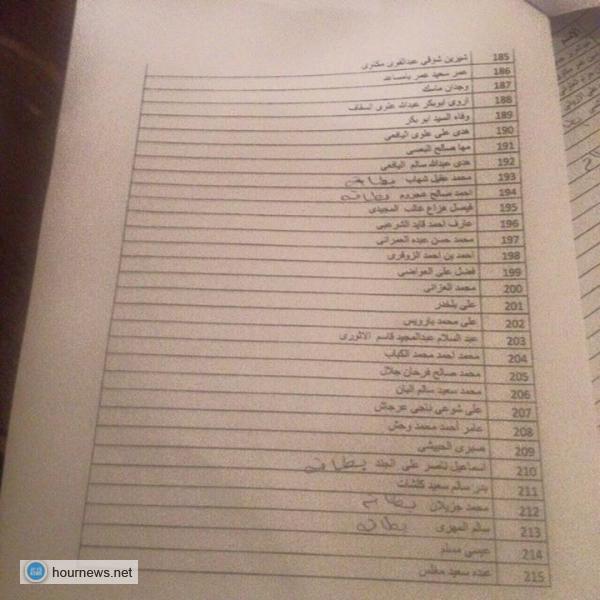 185 شيرين شوقي عبدالقوى مكاوى
186 عمر سعيد عمر بامساعد
187 وجدان ماسك
188 اروى ابوبكر عبدالله علوى السقاف
189 وفاء السيد ابو بكر
190 هدى على علوى اليافعي
191 مها صالح البعسي
192 هدى عبدالله سالم اليافعي
193 محمد عقيل شهاب بطاقة
194 احمد صالح بطاقة
195 فيصل هزاع غالب المجيدي
196 عارف احمد قايد الشرعبي
197 محمد حسن عبده العمراني
198 احمد بن احمد الزوقرى
199 فضل على العواضي
200 محمد العزاني
201 على بلخدر
202 على محمد بارويس
203 عبد السلام عبدالمجيد قاسم الاثورى
204 محمد احمد محمد الكباب
205 محمد صالح فرحان جلال
206 محمد سعيد سالم البان
207 على شوعى ناجى عرجاش
208 عامر أحمد محمد وحش
209 صبرى الحبيشي
210 اسماعيل ناصر على الجند بطاقة
211 بدر سالم سعيد كلشات
212 محمد جزيلان بطاقة
213 سالم المهرى بطاقة
214 عيسى مسلم
215 عبده سعيد مغلس
hournews.net